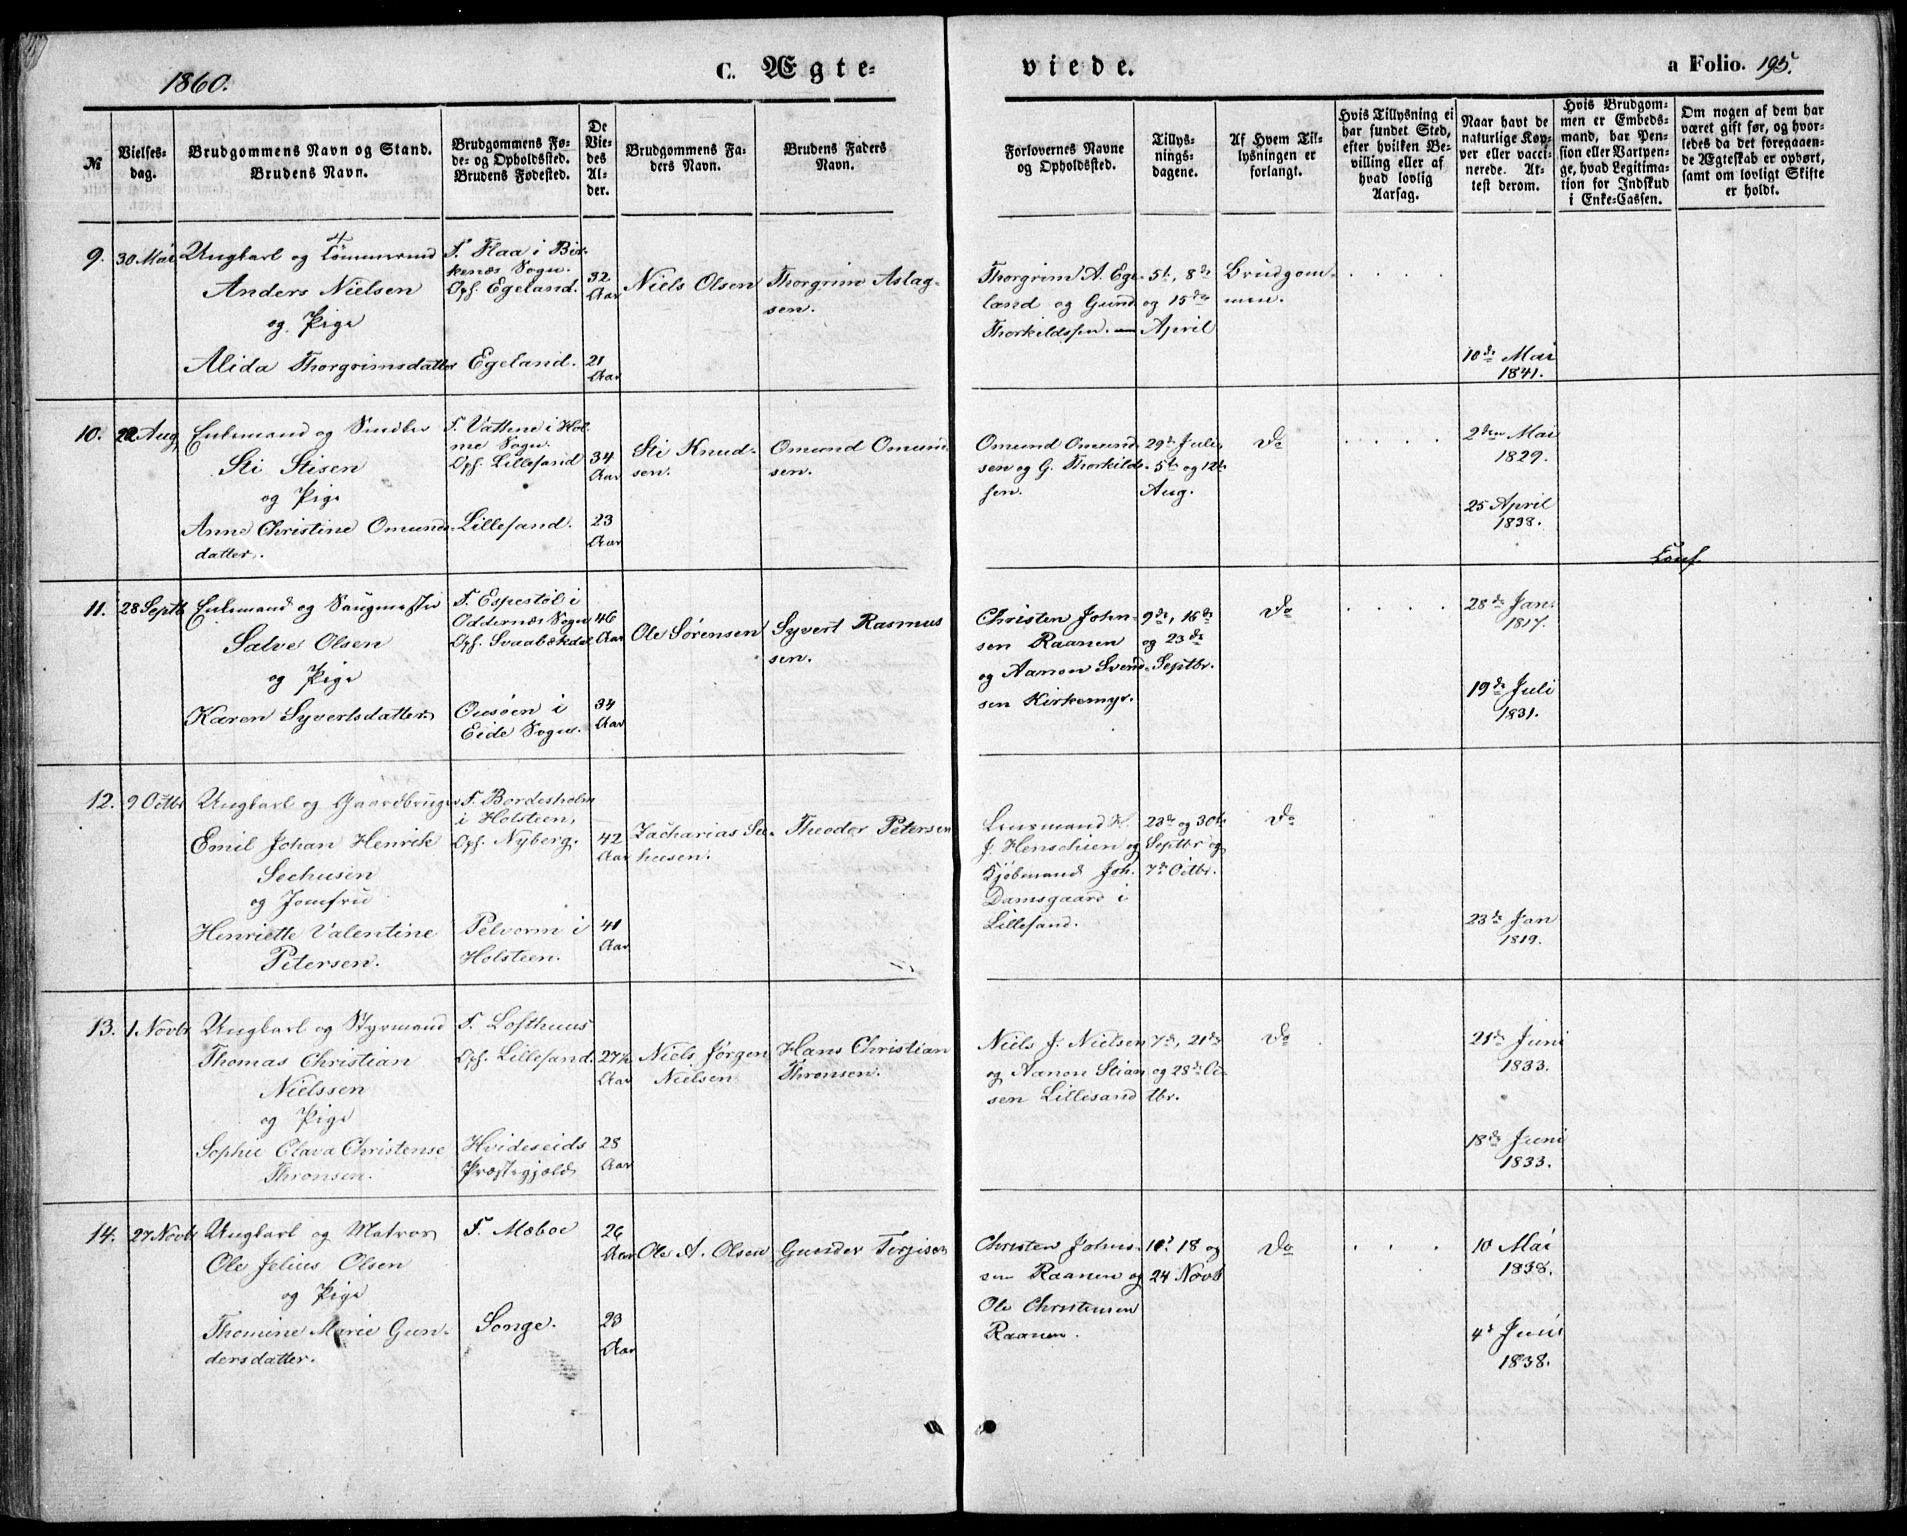 1860.
C. Ægte-
viede.
a Folio. 195.
№
Vielses-
dag.
Brudgommens Navn og Stand.
Brudens Navn.
Brudgommens Fø-
de- og Opholdssted.
Brudens Fødested.
De
Vie-
des
Al-
der.
Brudgommens Fa-
ders Navn.
Brudens Faders
Navn.
Forlovernes Navne
og Opholdssted.
Tillys-
nings-
dagene.
Af Hvem Til-
lysningen er
forlangt.
Hvis Tillysning ei
har fundet Sted,
efter hvilken Be-
villing eller af
hvad lovlig
Aarsag.
Naar havt de
naturlige Kop-
per eller vacci-
nerede. At-
test derom.
Hvis Brudgom-
men er Embeds-
mand, har Pen-
sion eller Vartpen-
ge, hvad Legitima-
tion for Indskud
i Enke-Cassen.
Om nogen af dem har
været gift før, og hvor-
ledes da det foregaaen-
de Ægteskab er ophørt,
samt om lovligt Skifte
er holdt.
9.
30 Mai
Ungkarl og Tømmermd
Anders Nielsen
og Pige
Alida Thorgrimsdatter
F. Flaa i Bir-
kenæs Sogn.
Oph. Egeland.
Egeland.
32
Aar
21
Aar
Niels Olsen
Thorgrim Aslag-
sen.
Thorgrim A. Ege-
land og Gund
Thorkildsen.
5t, 8de
og 15de
April
Brudgom-
men.
10de Mai
1841.
10.
22 Aug
Enkemand og Smed
Sti Stisen
og Pige
Anne Christine Omunds-
datter.
F. Vattene i Hol
me Sogn.
Oph. Lillesand
Lillesand.
34
Aar
23
Aar
Sti Knud-
sen.
Omund Omund
sen.
Omund Omund-
sen og G. Thorkild-
sen.
29de Juli
5te og 12te
Aug.
Do
2den Mai
1829.
25 April
1838.
Conf.
11.
28 Septb
Enkemand og Saugmester
Salve Olsen
og Pige
Karen Syvertsdatter
F. Espestøl i
Oddernæs Sogn
Oph. Svaabækdal
i
Eide Sogn.
46
Aar
34
Aar
Ole Sørensen
Syvert Rasmus
sen.
Christen John-
sen Raanen
og Aanon Svend-
sen Kirkemyr.
9de, 16de
og 23de
Septbr.
Do
28de Jan
1817.
19de Juli
1831.
12.
9 Octbr
Ungkarl og Gaardbruger
Emil Johan Henrik
Seehusen
og Jomfru
Henriette Valentine
Petersen.
F. Bordesholm
i Holsteen,
Oph. Nyberg.
Pelvorm i
Holsteen.
42
Aar
41
Aar
Zacharias See-
husen.
Theodor Petersen
Lensmand H.
J. Henschien og
Kjøbmand Joh.
Damsgaard i
Lillesand.
23de og 30te
Septbr og
7de Octbr.
Do
23de Jan
1819.
13.
1 Novbr
Ungkarl og Styrmand
Thomas Christian
Nielssen
og Pige
Sophie Olava Christense
Thronsen.
F. Lofthuus
Oph. Lillesand.
Hvideseids
Præstegjæld
27½
Aar
28
Aar
Niels Jørgen
Nielsen
Hans Christian
Thronsen.
Niels J. Nielsen
og Aanon Stian
sen Lillesand
7de, 21de
og 28de Oc-
tbr.
Do
21de Juni
1833.
18de Juni
1833.
14.
27 Novbr
Ungkarl og Matros
Ole Jelius Olsen
og Pige
Thomine Marie Gun-
dersdatter.
F. Mæboe
Songe.
26
Aar
23
Aar
Ole A. Olsen
Gunder Terjisen
Christen Johns-
sen Raanen og
Ole Christensen
Raanen.
18 og
24 Novb
Do
10 Mai
1838.
4de Juni
1838.